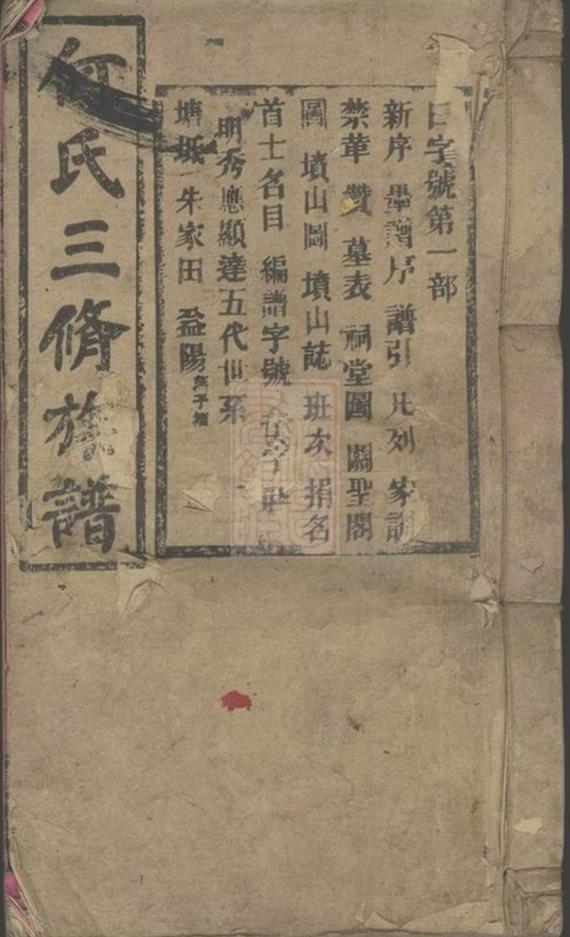 何氏三脩族譜
日字號第一部
新序 舊譜序 譜引 凡列 家訓
禁革 贊 墓表 祠堂圖 關聖閣
圖 墳山圖 墳山誌 班次 捐名
首士名目 編譜字號
明秀應顯達五代世系
塘坵 朱家田 益陽